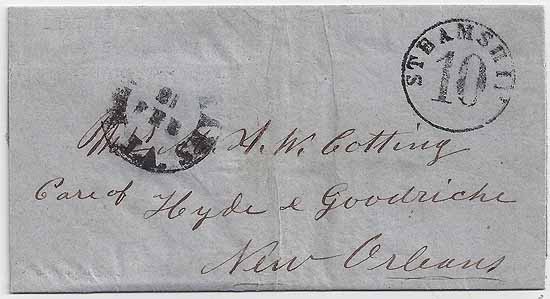 STEAMSHIP
10
21
FEB
LA.
H. W. Cotting
Care of Hyde & Goodriche
New Orleans